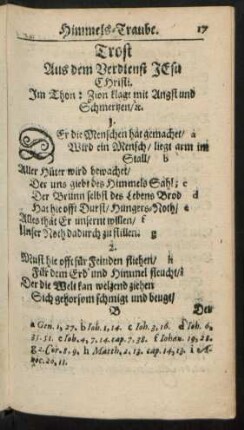 Himmels-Traube. 17
Trost
Aus dem Verdienst JEsu
CHristi.
Im Thon: Zion klagt mit Angst und
Schmertzen/ꝛc.
1.
DEr die Menschen hat gemachet/ a
Wird ein Mensch/ liegt arm im
Stall/ b
Aller Hüter wird bewachet/
Der uns giebt des Himmels Sahl; c
Der Brunn selbst des Lebens Brod d
Hat hie offt Durst/ Hungers-Noth/ e
Alles that Er unsernt willen/ f
Unser Noth dadurch zu stillen. g
2.
Must hie offt für Feinden fliehen/ h
Für dem Erd und Himmel fleucht/ i
Der die Welt kan welzend ziehen
Sich gehorsam schmigt und beugt/
B Der
a Gen. 1, 27. b Joh. 1, 14. c Joh. 3, 16. d Joh. 6,
35. 51. e Joh. 4, 7. 14. cap. 7. 38. f Johan. 19, 28.
g 2. Cor. 8, 9. h Matth. 2, 13. cap. 14, 13. i
oc. 20, 11.